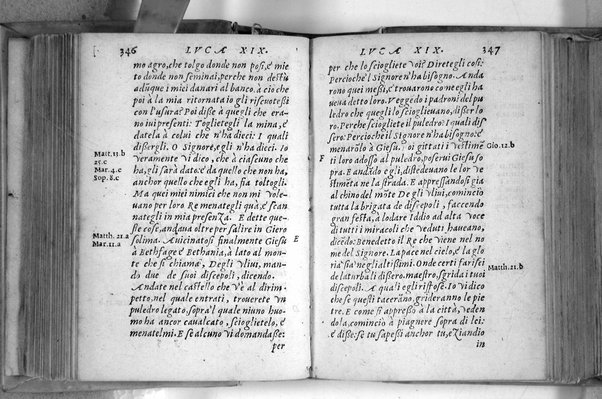 346 LVCAE XIX.
mo agro, che tolgo donde non posi, e mie
to donde non seminai, perche non desti
adũque i miei danari al banco, à cio che
poi à la mia ritornata io gli riscotessi
con l'usura? Poi disse à quegli che era-
no ivi presenti: Toglietegli la mina, e
datela à colui che n'ha dieci. I quali
dissergli. O Signore, egli n'ha dieci. Io
Matt.13.b
veramente vi dico, che à ciascuno che
25.c
ha, gli sarà dato: e da quello che non ha,
Mar.4.c
anchor quello che egli ha, sia toltogli.
Sop. 8.c
Ma quei miei nimici che non mi vole-
vano per loro Re menategli quà, e scan
nategli in mia presenza. E dette que-
ste cose, andava oltre per salire in Giero
Matth. 21.a
solima. Avicinatosi finalmente Giesu
E
Mar.11.a
à Bethfage e Bethania, à lato al mon-
te che si chiama, Degli Vlivi, man-
do due de suoi discepoli, dicendo.
Andate nel castello che v'è al dirim-
petto, nel quale entrati, troverete un
puledro legato, sopra'l quale niuno huo-
mo ha ancor cavalcato, scioglietelo, e
menatelmi. E se alcuno vi domandasse:
per
LVCAE XIX. 347
per che lo sciogliete voi? Diretegli cosi:
Percioche'l Signore n'ha bisogno. Anda
rono quei messi, e trovarono come egli ha
veva detto loro. Veggedo i padroni del pu
ledro che quegli lo scioglievano, disser lo
ro. Perche sciogliete il puledro? I quali dis
sero. Percioche'l Signore n'ha bisogno: e
menarõlo à Giesu. poi gittati i vestimẽ
Gio.12.b
F
ti loro adosso al puledro, poservi Giesu so
pra. E andãdo egli, distedevano le lor ve
stimẽta ne la strada. E appressandosi gia
al chino del mõte De gli Vlivi, comincio
tutta la brigata de discepoli, faccendo
gran festa, à lodare Iddio ad alta voce
di tutti i miracoli che veduti haveano,
dicẽdo: Benedetto il Re che viene nel no
me del Signore. La pace nel cielo, e la glo
ria sia ne gli altissimi. Onde certi farisei
Matth.21.b
de la turba li dissero. maestro, sgrida i tuoi
discepoli. A quali egli rispose. Io vi dico
che se questi tacerãno, grideranno le pie
tre. E come si appresso à la città, veden
dola, comincio à piagnere sopra di lei:
e disse: se tu sapessi anchor tu, e ziandio
in